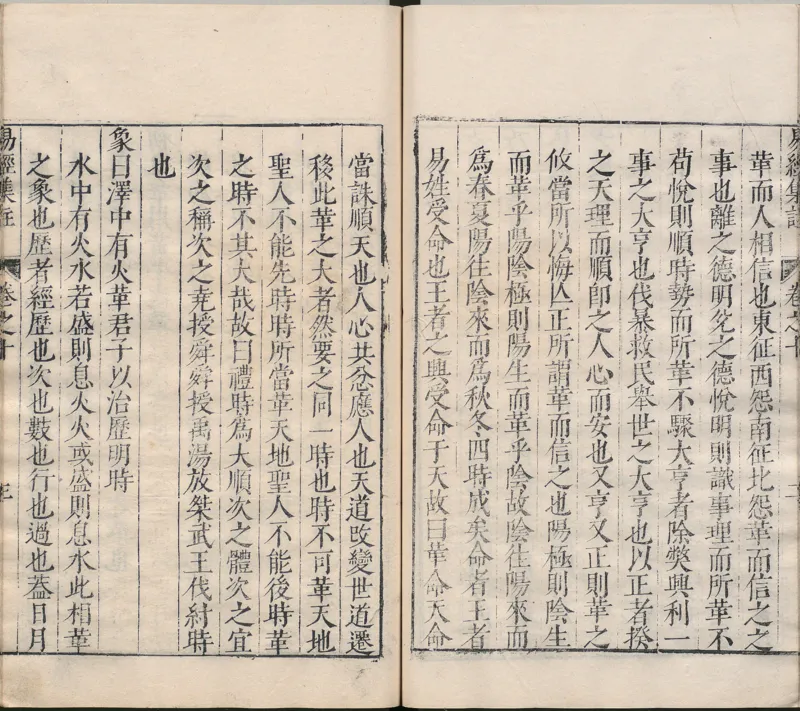 易經集註 卷之十
革而人相信也東征西怨南征北怨革而信之之
事也離之德明兌之德悅明則識事理而所革不
苟悅則順時勢而所革不驟大亨者除獘興利一
事之大亨也伐暴救民舉世之大亨也以正者揆
之天理而順卽之人心而安也又亨又正則革之
攸當所以悔亾正所謂革而信之也陽極則陰生
而革乎陽陰極則陽生而革乎陰故陰往陽來而
爲春夏陽往陰來而爲秋冬四時成矣命者王者
易姓受命也王者之興受命于天故曰革命天命
當誅順天也人心共忿應人也天道改變世道遷
移此革之大者然要之同一時也時不可革天地
聖人不能先時時所當革天地聖人不能後時革
之時不其大哉故曰禮時爲大順次之體次之宜
次之稱次之堯授舜舜授禹湯放桀武王伐紂時
也
象曰澤中有火革君子以治歷明時
水中有火水若盛則息火火或盛則息水此相革
之象也歷者經歷也次也數也行也過也葢日月
易經集註 卷之十